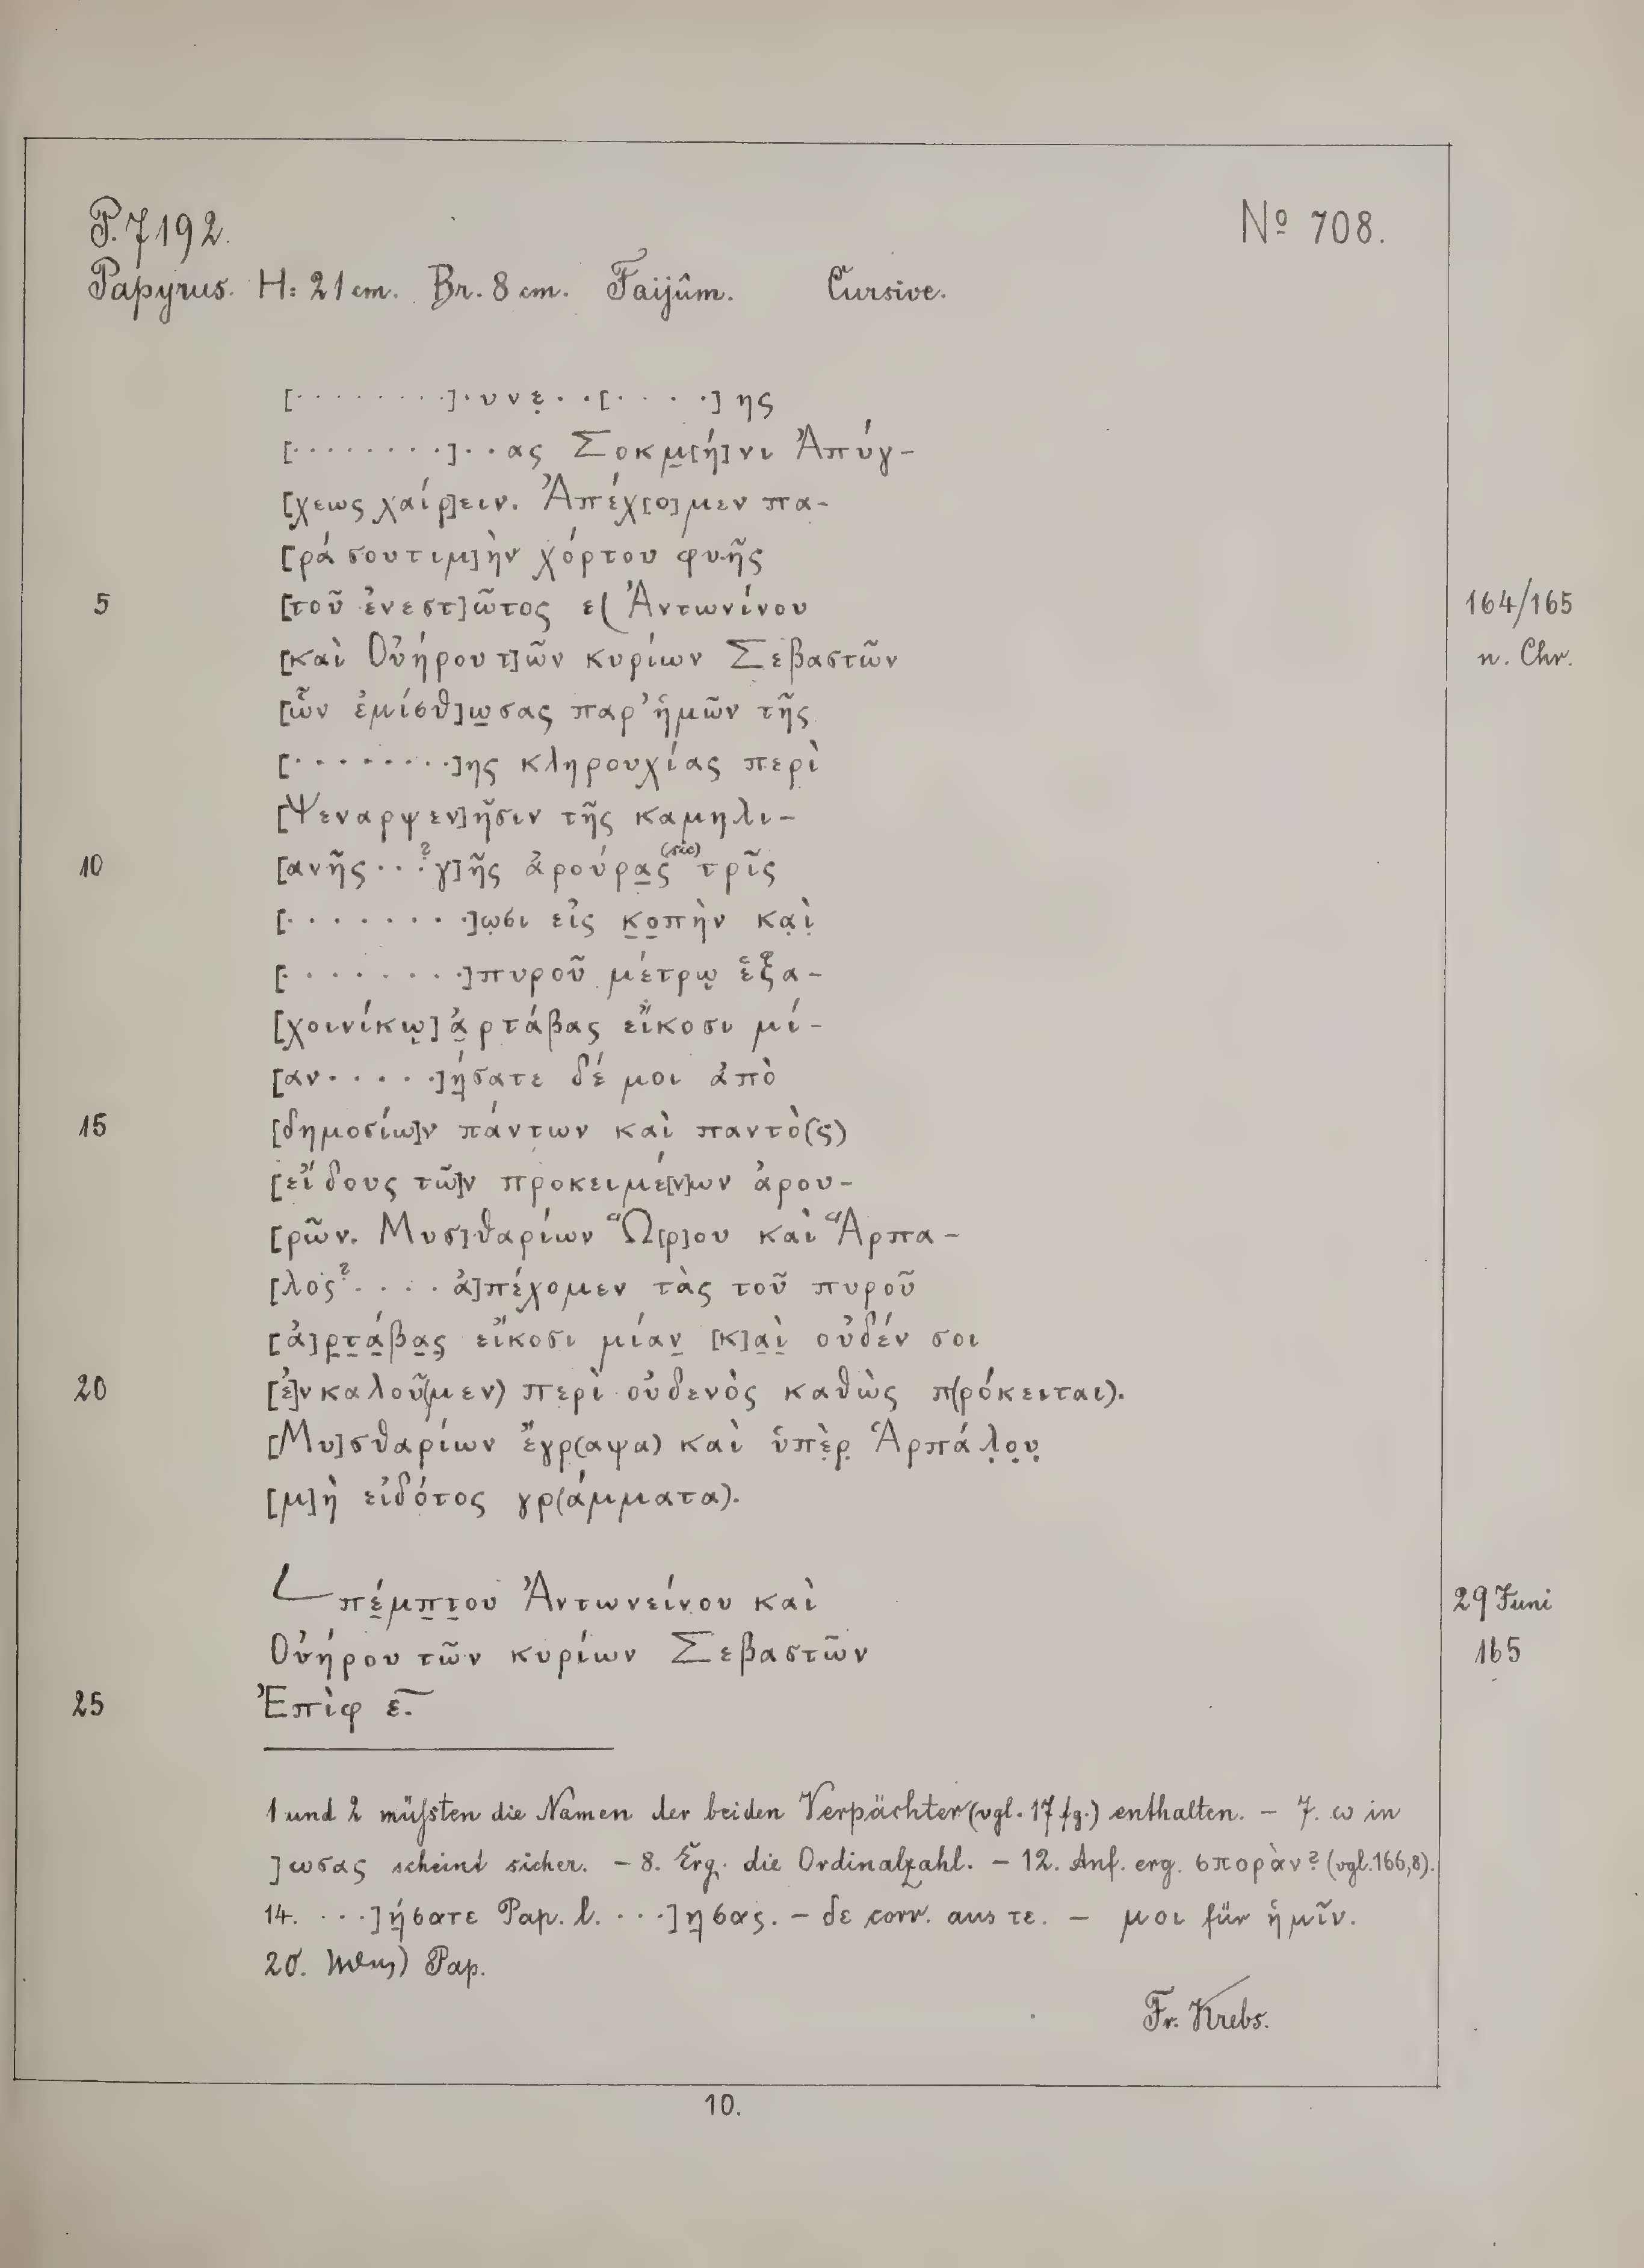 P. 7192. No 708.
Papyrus. H: 21 cm. Br. 8 cm. Faijûm. Cursive.
[·········]·υνε̣··[····]ης
[········]··ας Σοκμ̣[ή]νι Ἀπύγ-
[χεως χαίρ]ειν. Ἀπέχ[ο]μεν πα-
[ρά σου τιμ]ὴν χόρτου φυῆς
5 [τοῦ ἐνεστ]ῶτος ε( Ἀντωνίνου 164/165
[καὶ Οὐήρου τ]ῶν κυρίων Σεβαστῶν n. Chr.
[ὧν ἐμίσθ]ω̣σας παρ’ ἡμῶν τῆς
[········]ης κληρουχίας περὶ
[Ψεναρψεν]ῆσιν τῆς καμηλι-
10 [ανῆς···? γ]ῆς ἀρούρα̣ς (sic) τρῖς
[········]ω̣σι εἰς κ̣ο̣πὴν κα̣ὶ̣
[········]πυροῦ μέτρῳ ἑξα-
[χοινίκῳ] ἀ̣ρτάβας εἴκοσι μί-
[αν·····]ή̣σατε δέ μοι ἀπὸ
15 [δημοσίω]ν πάντων καὶ παντὸ(ς)
[εἴδους τῶ]ν προκειμέ[ν]ων ἀρου-
[ρῶν. Μυσ]θαρίων Ὥ[ρ]ου καὶ Ἅρπα-
[λος?···· ἀ]πέχομεν τὰς τοῦ πυροῦ
[ἀ]ρ̣τ̣ά̣βα̣ς̣ εἴκοσι μίαν̣ [κ]α̣ὶ̣ οὐδέν σοι
20 [ἐ]νκαλοῦ(μεν) περὶ οὐδενὸς καθὼς π(ρόκειται).
[Μυ]σθαρίων ἔγρ(αψα) καὶ ὑπὲ̣ρ̣ Ἁρπάλ̣ο̣υ̣
[μ]ὴ εἰδότος γρ(άμματα).
L πέ̣μπ̣τ̣ου Ἀντωνείνου καὶ 29 Juni
Οὐήρου τῶν κυρίων Σεβαστῶν 165
25 Ἐπὶφ ε̅.
1 und 2 müßten die Namen der beiden Verpächter (vgl. 17 fg.) enthalten. – 7. ω in
]ωσας scheint sicher. – 8. Erg. die Ordinalzahl. – 12. Anf. erg. σπορὰν? (vgl. 166,8).
14. ···]ή̣σατε Pap. l. ···]η̣σας. – δε corr. aus τε. – μοι für ἡμῖν.
20. Pap.
Fr. Krebs.
10.